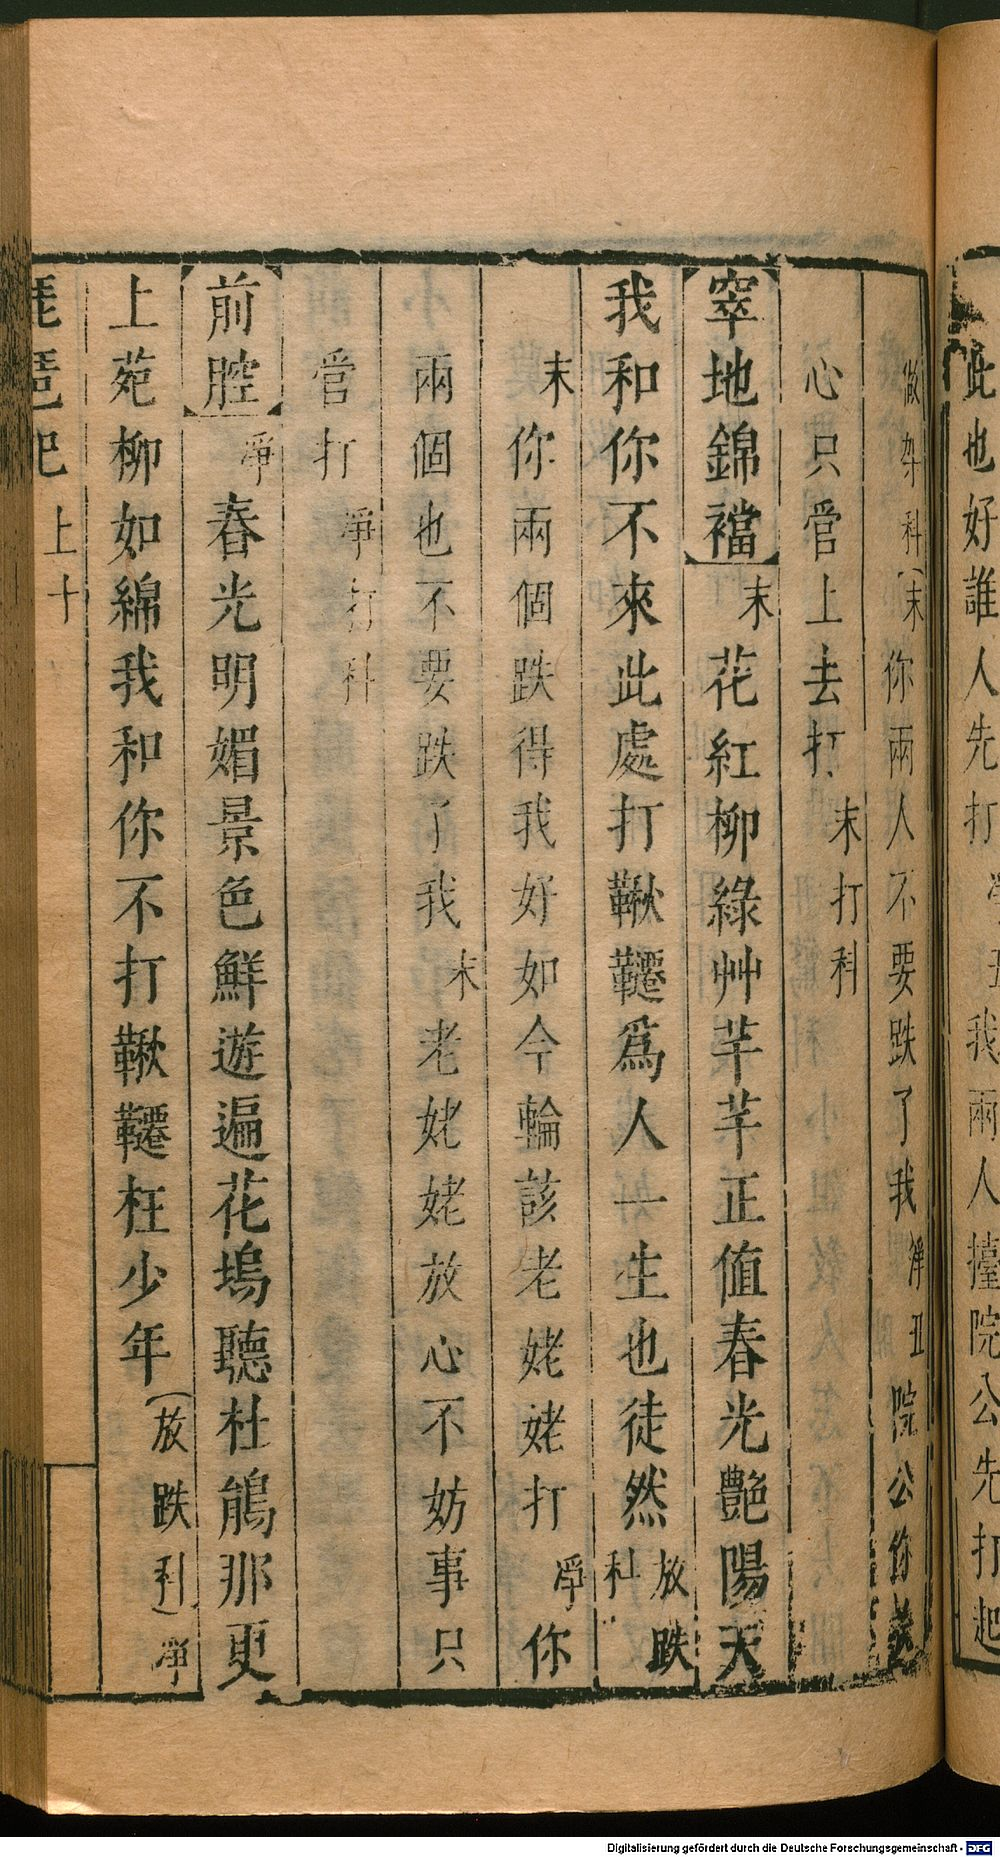 此也好誰人先打淨丑我兩人擡院公先打起
做架科末你兩人不要跌了我淨丑院公你放
心只管上去打末打科
窣地錦襠末花紅柳綠艸芊芊正值春光艷陽天
我和你不來此處打鞦韆爲人一生也徒然放跌科
末你兩個跌得我好如今輪該老姥姥打淨你
兩個也不要跌了我末老姥姥放心不妨事只
管打淨打科
前腔淨春光明媚景色鮮遊遍花塢聽杜鵑那更
上苑柳如綿我和你不打鞦韆枉少年放跌科淨
琵琶記 上十
Digitalisierung gefördert durch die Deutsche Forschungsgemeinschaft - DFG